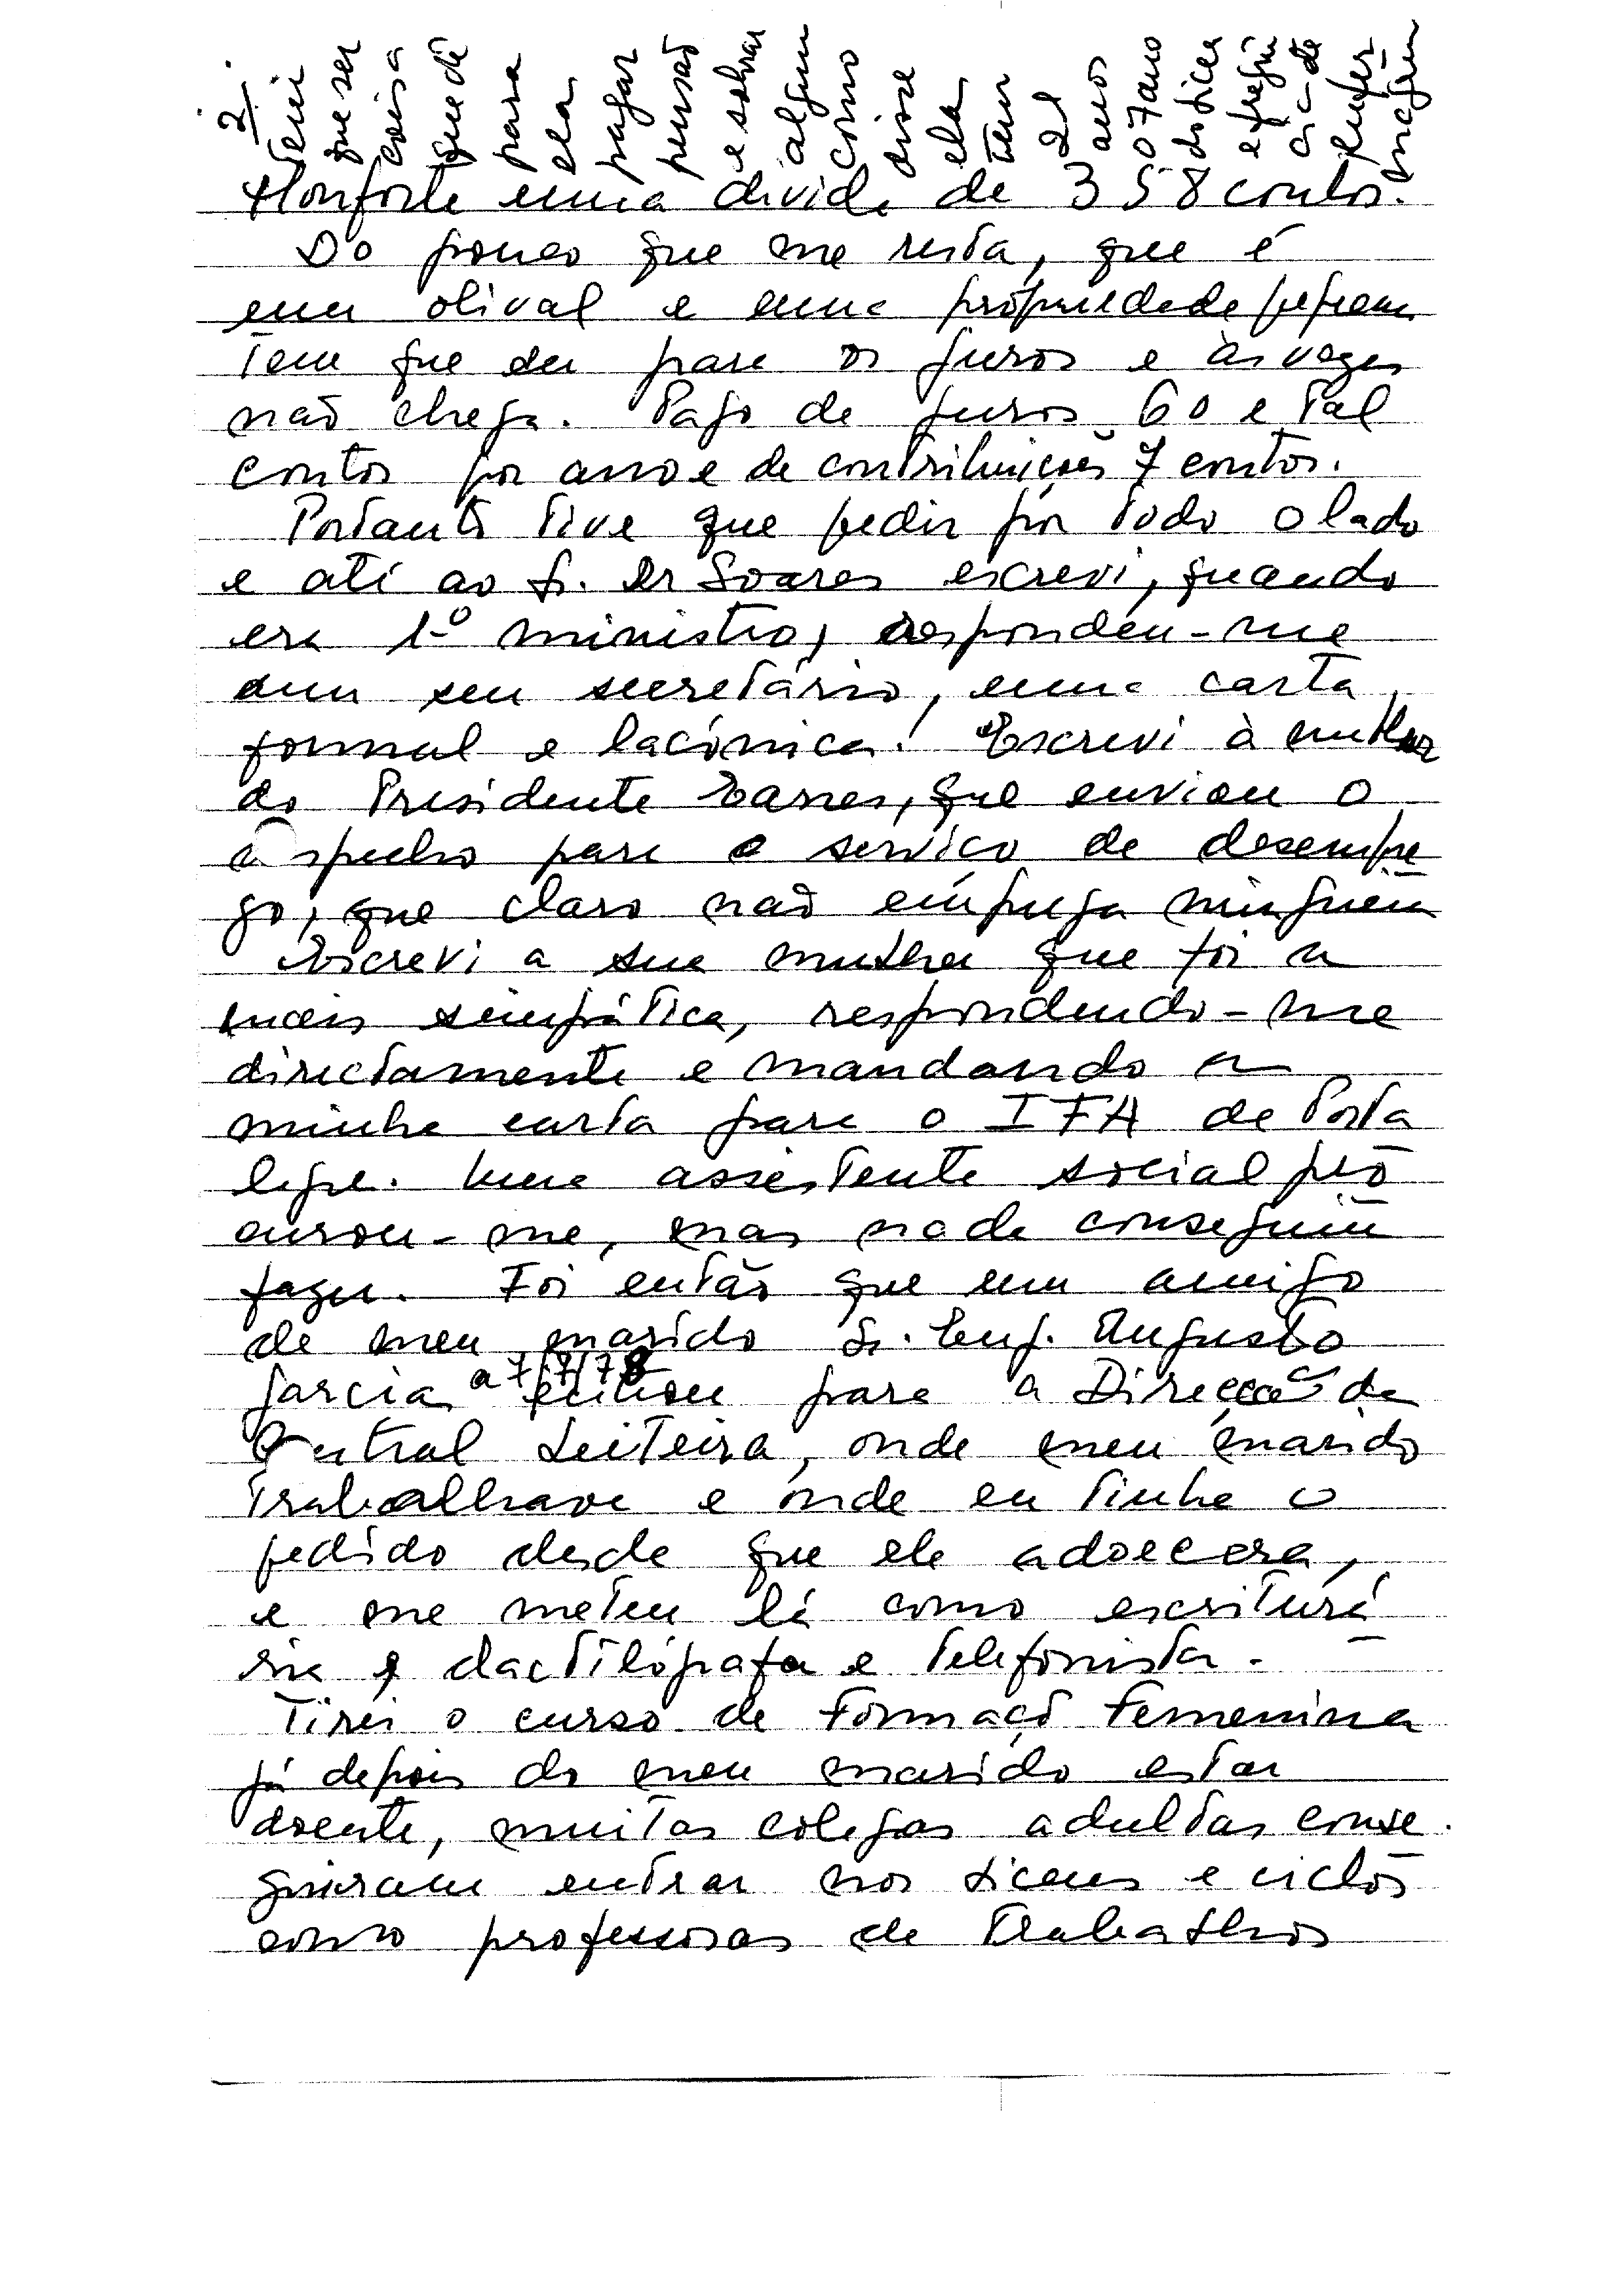 2.
Tem
que ser
coisa
que dê
para
ela
pagar
pensão
e sobrar
algum
como
disse
ela
tem
21
anos
o 7º ano
do liceu
e frequ
de
enfer
magem
Monforte uma divida de 358 contos.
Do pouco que me resta, que é
um olival e uma propriedade pequena
tem que dar para os juros e às vezes
não chega. Pago de juros 60 e tal
contos por ano e de contribuições 7 contos.
Portanto tive que pedir por todo o lado
e até ao Sr. Dr Soares escrevi, quando
era 1º ministro, respondeu-me
um seu secretário, numa carta
formal e lacónica! Escrevi à mulher
do Presidente Eanes, que enviou o
a specho para o serviço de desempre
go, que claro não emprega ninguém
Escrevi a sua mulher que foi a
mais simpática, respondendo-me
directamente e mandando a
minha carta para o IFA de Porta
legre. Uma assistente social pro
curou-me, mas nada conseguiu
fazer. Foi então que um amigo
de meu marido Sr. Eng. Augusto
Garcia a 7/7/78 entrou para a Direcção da
Central Leiteira, onde meu marido
trabalhava e onde eu tinha o
pedido desde que ele adoecera,
e me meteu lá como escriturá
ria e dactilógrafa e telefonista.
Tirei o curso de Formação Femenina
já depois do meu marido estar
doente, muitas colegas adultas conse
guiram entrar nos liceus e ciclos
como professoras de Trabalhos